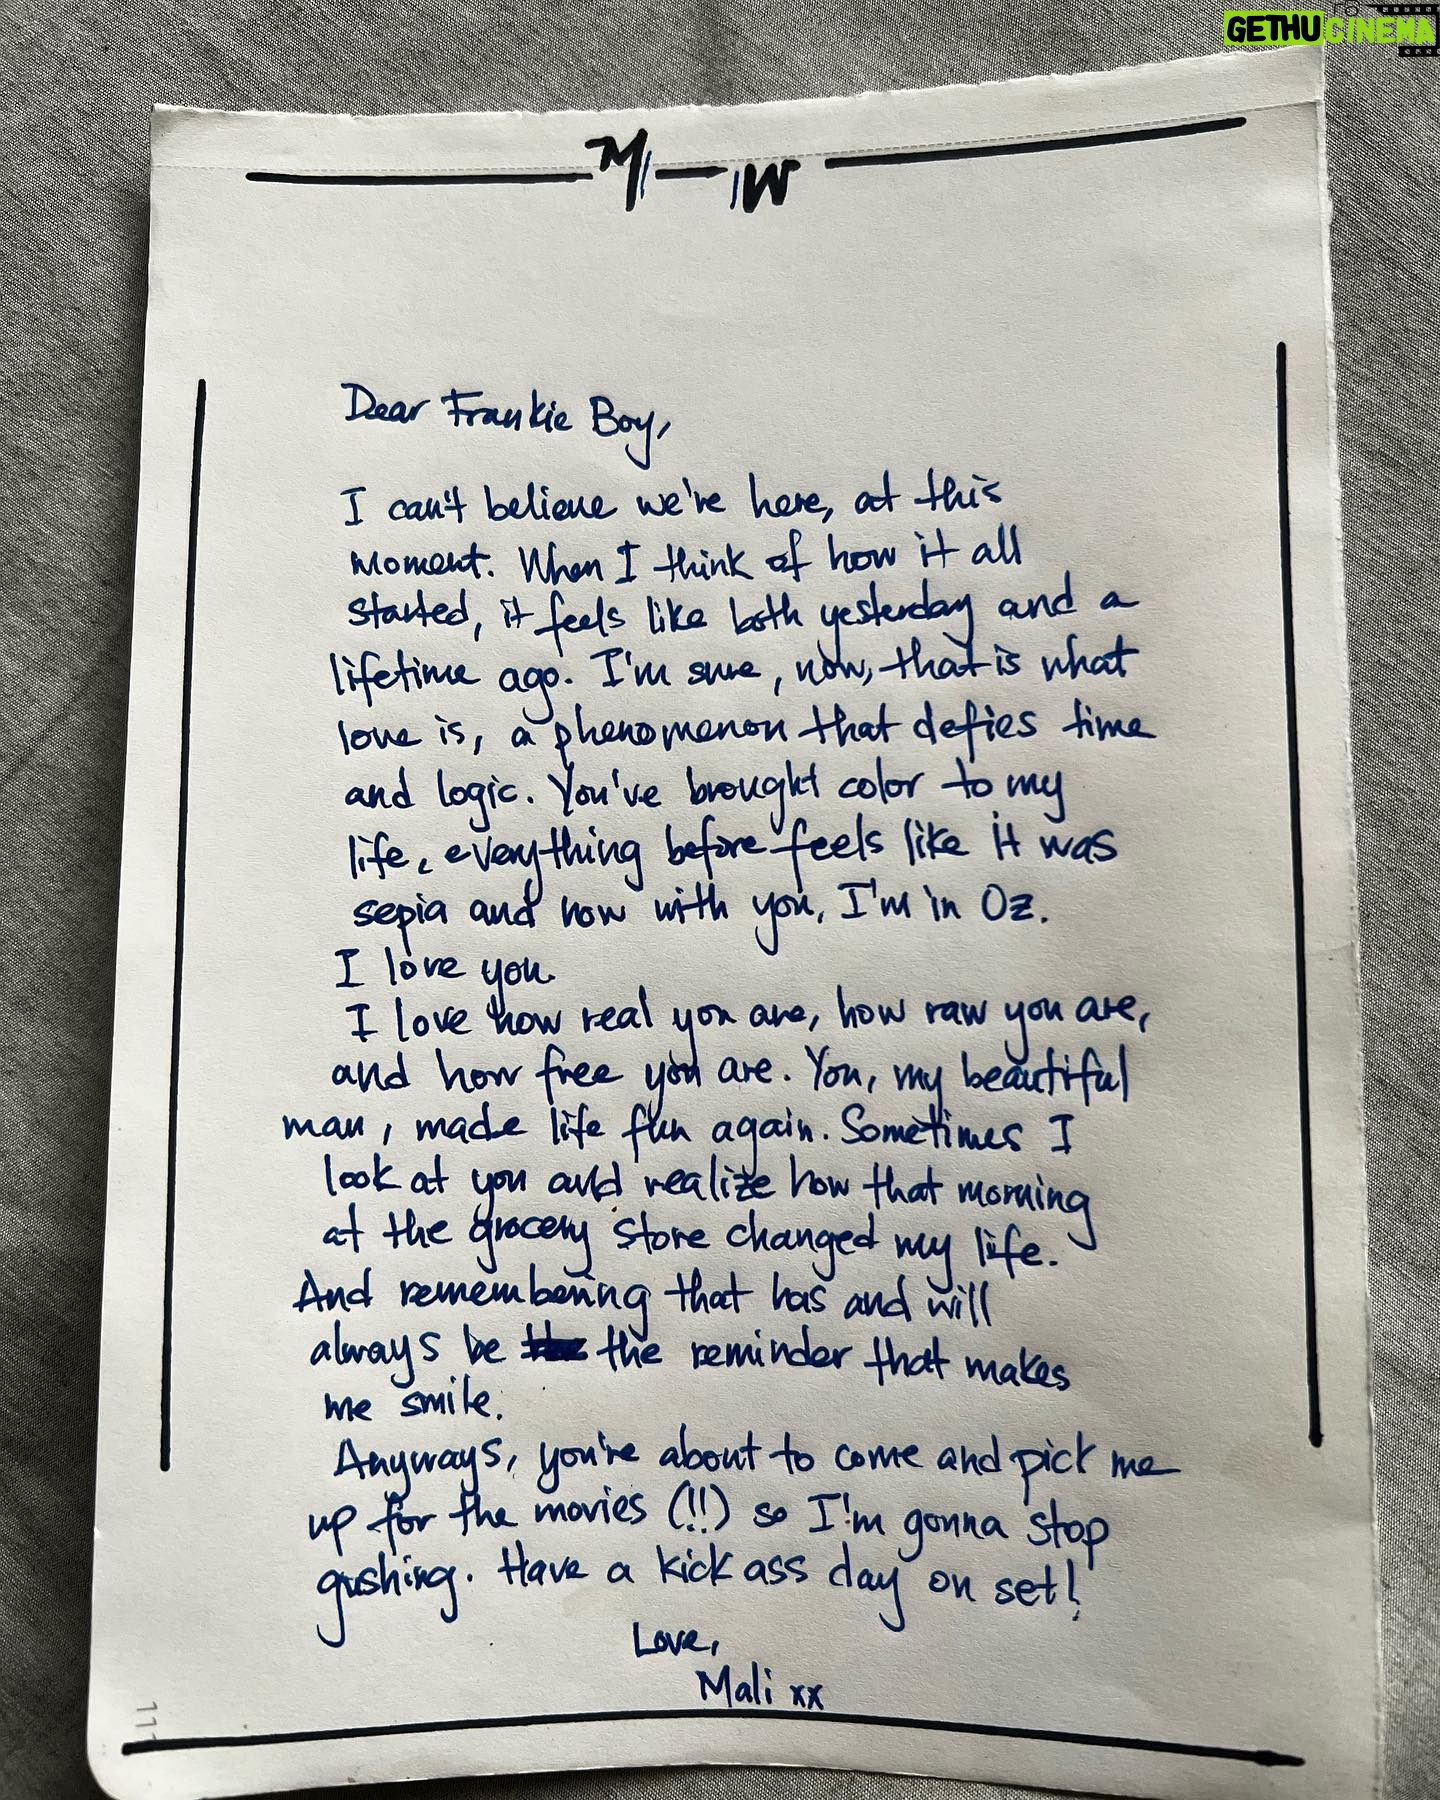 GETHUCINEMA
M — W
Dear Frankie Boy,
I can't believe we're here, at this
moment. When I think of how it all
started, it feels like both yesterday and a
lifetime ago. I'm sure, now, that is what
love is, a phenomenon that defies time
and logic. You've brought color to my
life, everything before feels like it was
sepia and now with you, I'm in Oz.
I love you.
I love how real you are, how raw you are,
and how free you are. You, my beautiful
man, made life fun again. Sometimes I
look at you and realize how that morning
at the grocery store changed my life.
And remembering that has and will
always be the reminder that makes
me smile.
Anyways, you're about to come and pick me
up for the movies (!!) so I'm gonna stop
gushing. Have a kick ass day on set!
Love,
Mali xx
111